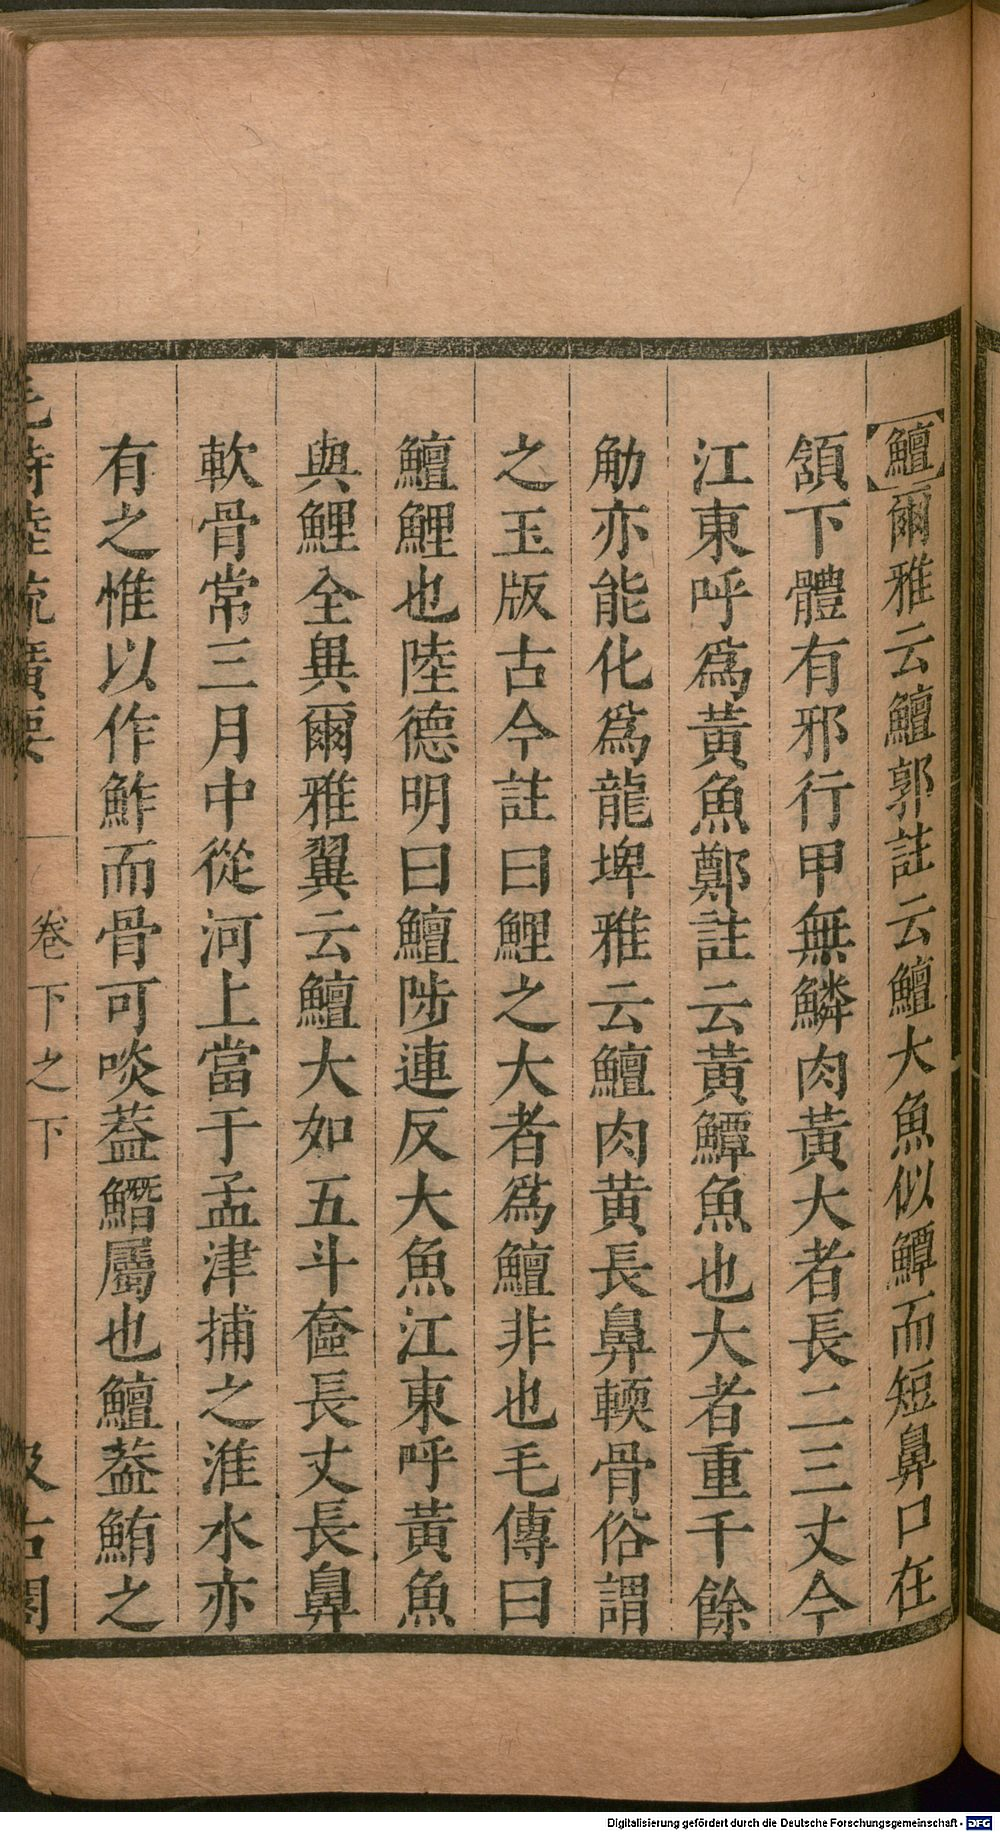 鱣爾雅云鱣郭註云鱣大魚似鱏而短鼻口在
頷下體有邪行甲無鱗肉黃大者長二三丈今
江東呼爲黃魚鄭註云黃鱏魚也大者重千餘
觔亦能化爲龍埤雅云鱣肉黃長鼻輭骨俗謂
之玉版古今註曰鯉之大者爲鱣非也毛傳曰
鱣鯉也陸德明曰鱣陟連反大魚江東呼黃魚
與鯉全異爾雅翼云鱣大如五斗奩長丈長鼻
軟骨常三月中從河上當于孟津捕之淮水亦
有之惟以作鮓而骨可啖葢鱕屬也鱣葢鮪之
毛詩陸疏廣要 卷下之下 汲古閣
Digitalisierung gefördert durch die Deutsche Forschungsgemeinschaft - DFG